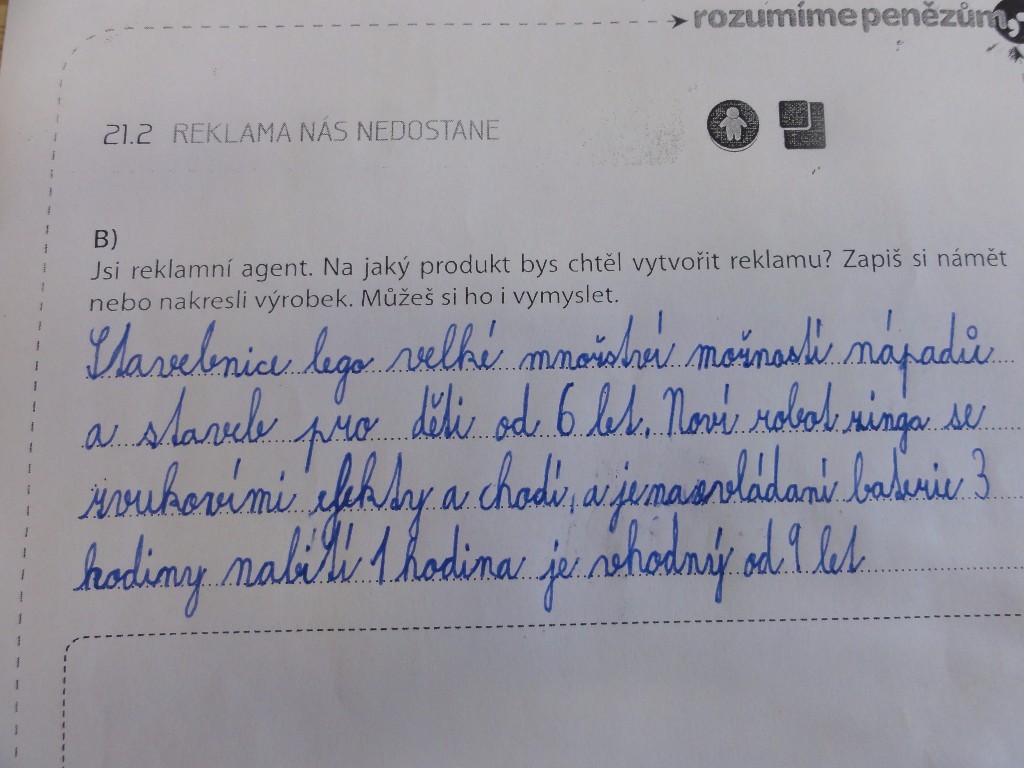 rozumíme penězům
21.2 REKLAMA NÁS NEDOSTANE
B)
Jsi reklamní agent. Na jaký produkt bys chtěl vytvořit reklamu? Zapiš si námět
nebo nakresli výrobek. Můžeš si ho i vymyslet.
Stavebnice lego velké množství možností nápadů
a staveb pro děti od 6 let. Noví robot ninga se
zvukovími efekty a chodí, a je na ovládaní baterie 3
hodiny nabití 1 hodina je vhodný od 9 let